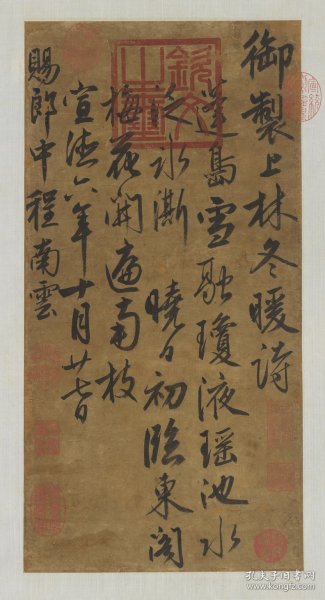 御製上林冬暖詩
蓬島雪融瓊液瑶池水
泛冰澌 曉日初臨東閣
梅花開遍南枝
宣德六年十月廿七日
賜郎中程南雲
孔夫子旧书网
www.kongfz.com